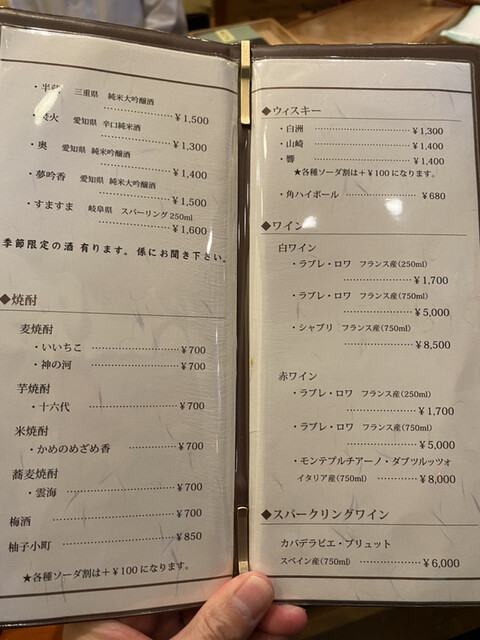 ・半蔵 三重県 純米大吟醸酒
¥1,500
火 愛知県 辛口純米酒
¥1,300
・奥 愛知県 純米吟醸酒
¥1,400
・夢吟香 愛知県 純米大吟醸酒
¥1,500
・すますま 岐阜県 スパーリング250ml
¥1,600
季節限定の酒 有ります。係にお聞き下さい。
◆焼酎
麦焼酎
・いいちこ ¥700
・神の河 ¥700
芋焼酎
・十六代 ¥700
米焼酎
・かめのめざめ香 ¥700
蕎麦焼酎
・雲海 ¥700
梅酒 ¥700
柚子小町 ¥850
★各種ソーダ割は+¥100になります。
◆ウィスキー
・白洲 ¥1,300
・山崎 ¥1,400
・響 ¥1,400
★各種ソーダ割は+¥100になります。
・角ハイボール ¥680
◆ワイン
白ワイン
・ラブレ・ロワ フランス産(250ml)
¥1,700
・ラブレ・ロワ フランス産(750ml)
¥5,000
・シャブリ フランス産(750ml)
¥8,500
赤ワイン
・ラブレ・ロワ フランス産(250ml)
¥1,700
・ラブレ・ロワ フランス産(750ml)
¥5,000
・モンテプルチアーノ・ダブツルッツォ
イタリア産(750ml) ¥8,000
◆スパークリングワイン
カバデラビエ・ブリュット
スペイン産(750ml) ¥6,000